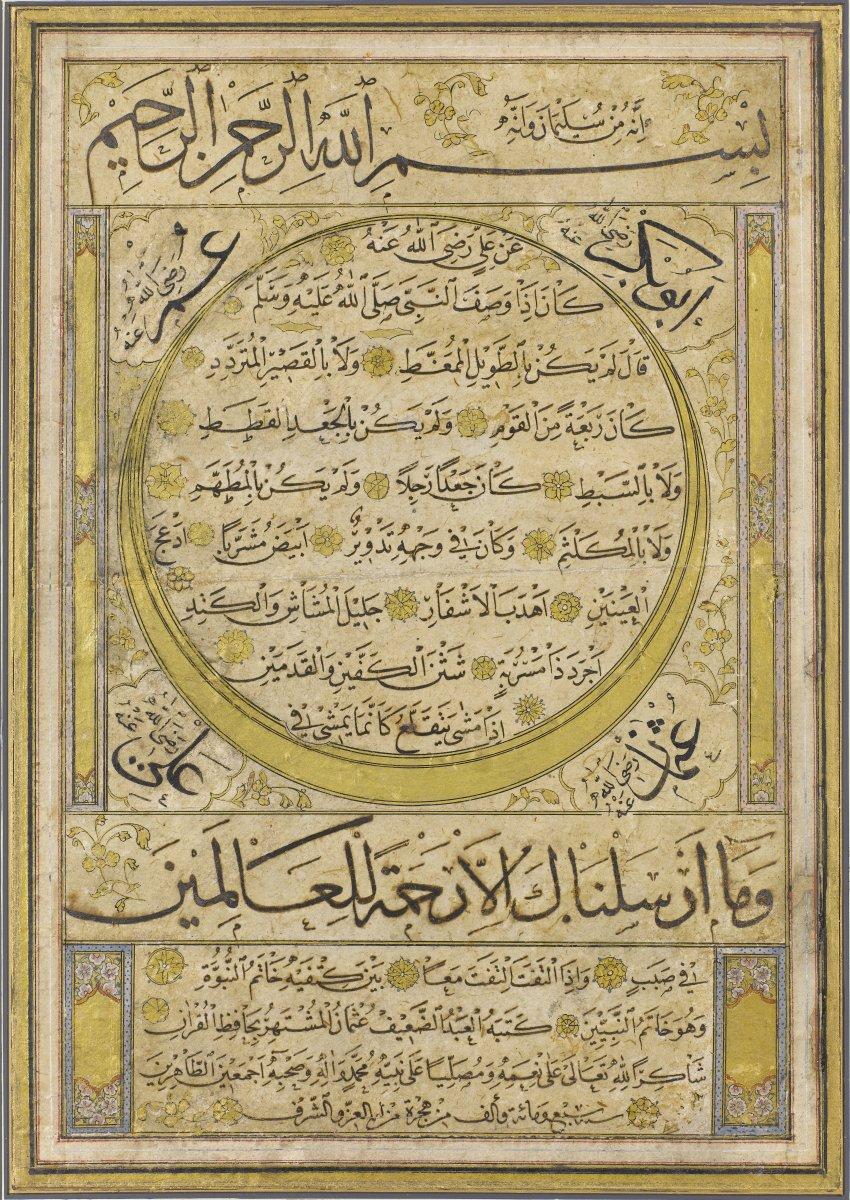 إنه من سليمان وإنه
بسم الله الرحمن الرحيم
ابو بكر رضي الله عنه
عمر رضي الله عنه
عن علي رضي الله عنه
كان اذا وصف النبي صلى الله عليه وسلم
قال لم يكن بالطويل الممغط ولا بالقصير المتردد
كان ربعة من القوم ولم يكن بالجعد القطط
ولا بالسبط كان جعدا رجلا ولم يكن بالمطهم
ولا بالمكلثم وكان في وجهه تدوير ابيض مشربا ادعج
العينين اهدب الاشفار جليل المشاش والكتد
اجرد ذا مسربة شثن الكفين والقدمين
اذا مشى يتقلع كأنما يمشي في
عثمان رضي الله عنه
علي رضي الله عنه
وما ارسلناك الا رحمة للعالمين
في صبب واذا التفت التفت معا بين كتفيه خاتم النبوة
وهو خاتم النبيين كتبه العبد الضعيف عثمان المشتهر بحافظ القرآن
شاكرا لله تعالى على نعمه ومصليا على نبيه محمد وآله وصحبه اجمعين الطاهرين
سبع ومائة وألف من هجرة من له العز والشرف